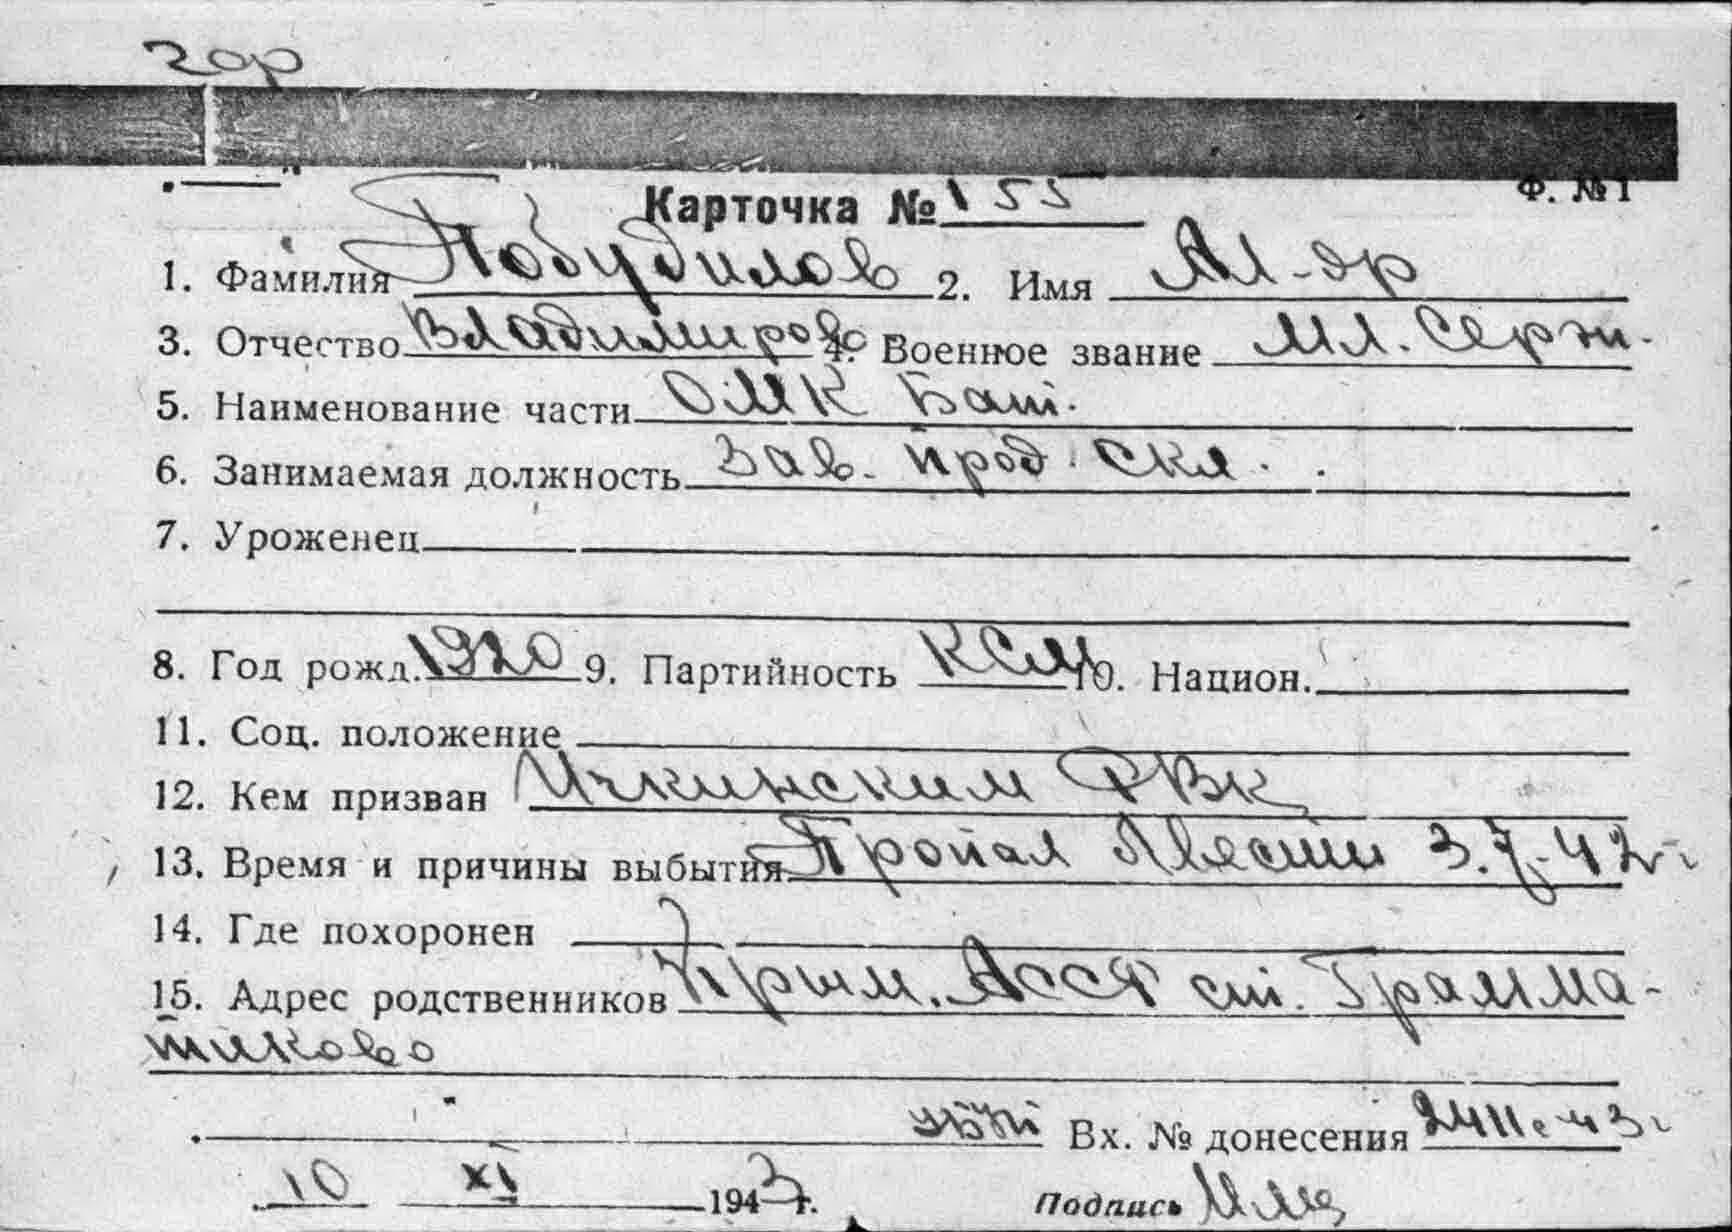 гор
Карточка № 155 Ф. № 1
1. Фамилия Побудилов 2. Имя Ал-др
3. Отчество Владимиров 4. Военное звание Мл. Серж.
5. Наименование части ОМК Бат.
6. Занимаемая должность Зав. прод. скл.
7. Уроженец
8. Год рожд. 1920 9. Партийность КСМ 10. Национ.
11. Соц. положение
12. Кем призван Ичкинским РВК
13. Время и причины выбытия Пропал Авести 3.7.42 г
14. Где похоронен
15. Адрес родственников Крым. АССР ст. Грамма-
тиково
Вх. № донесения
10 XI 1943 г.
Подпись